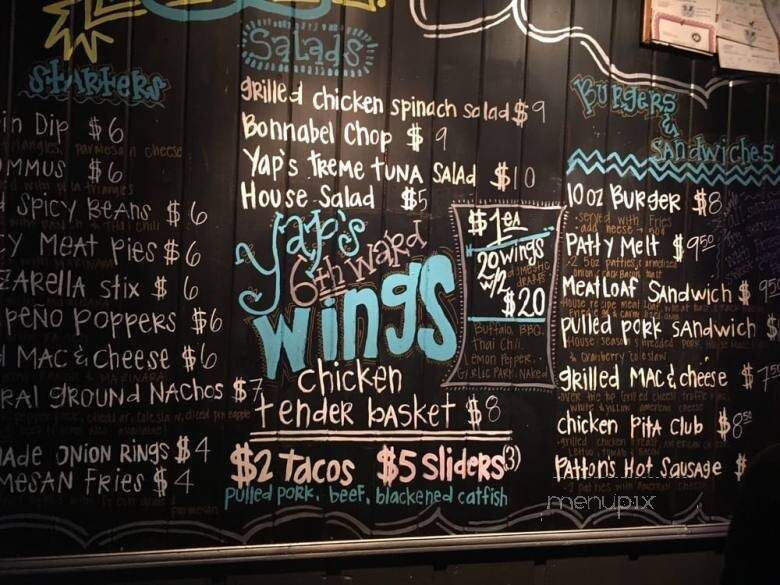 Starters
in Dip $6
ummus $6
Spicy Beans $6
cy Meat Pies $6
zarella Stix $6
peño Poppers $6
Mac & cheese $6
ral ground Nachos $7
ade Onion Rings $4
mesan Fries $4
Salads
grilled chicken spinach salad $9
Bonnabel Chop $9
Yap's Treme Tuna Salad $10
House Salad $5
Yap's
6th Ward
wings
$1 ea
20 wings
w/2
domestic
drafts
$20
Buffalo, BBQ,
Thai Chili
Lemon Pepper,
Garlic Parm, Naked
chicken
tender basket $8
$2 Tacos $5 Sliders (3)
pulled pork, beef, blackened catfish
Burgers
&
Sandwiches
10 oz Burger $8
served with fries
Patty Melt $9.50
Meatloaf Sandwich $9.50
pulled pork sandwich $
grilled Mac & cheese $7.50
white & yellow american cheese
chicken Pita Club $8.50
Patton's Hot Sausage $
menupix